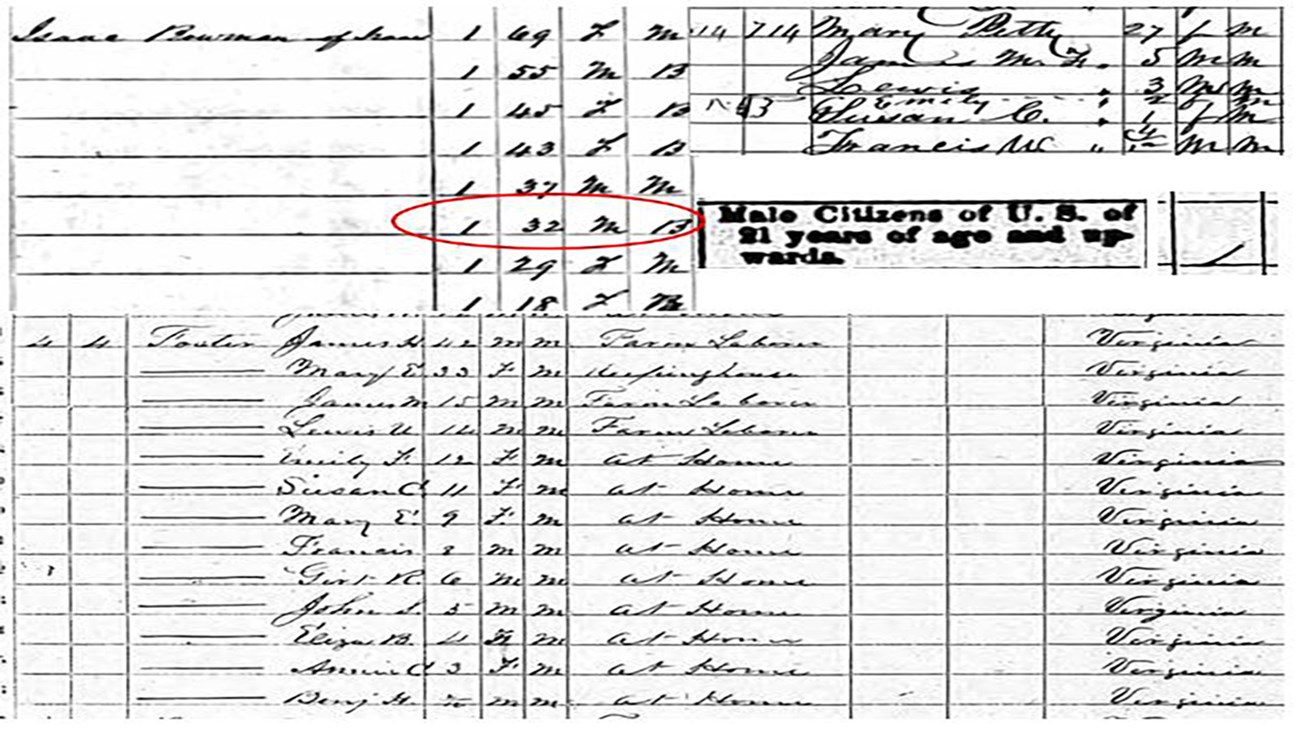 Isaac Bowman of Isaac 1 69 F M
1 55 M B
1 45 F B
1 43 F B
1 37 M M
1 32 M B
1 29 F M
1 18 F B
714 714 Mary Petty 27 f m
James M. F. " 5 m m
Lewis " 3 m m
Emily " 2 f m
Susan C. " 1 f m
Francis W. " m m
Male Citizens of U. S. of
21 years of age and up-
wards.
4 4 Foster James H 42 m m Farm Laborer Virginia
Mary E. 33 F m Keeping house Virginia
James M 15 m m Farm Laborer Virginia
Lewis W 14 m m Farm Laborer Virginia
Emily F. 12 F m at Home Virginia
Susan C 11 F m at Home Virginia
Mary E. 9 F m at Home Virginia
Francis 8 m m at Home Virginia
R. 6 m m at Home Virginia
John S. 5 m m at Home Virginia
Eliza B. 4 F m at Home Virginia
Annie C 3 F m at Home Virginia
Benj H. m m Virginia